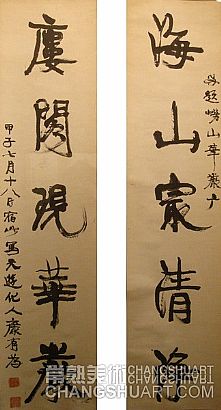 海山㝡清淨
題嶗山華嚴广
廔閣現華嚴
甲子七月十八日宿此寫天遊化人康有為
常熟美術 CHANGSHUART
CHANGSHUART.COM